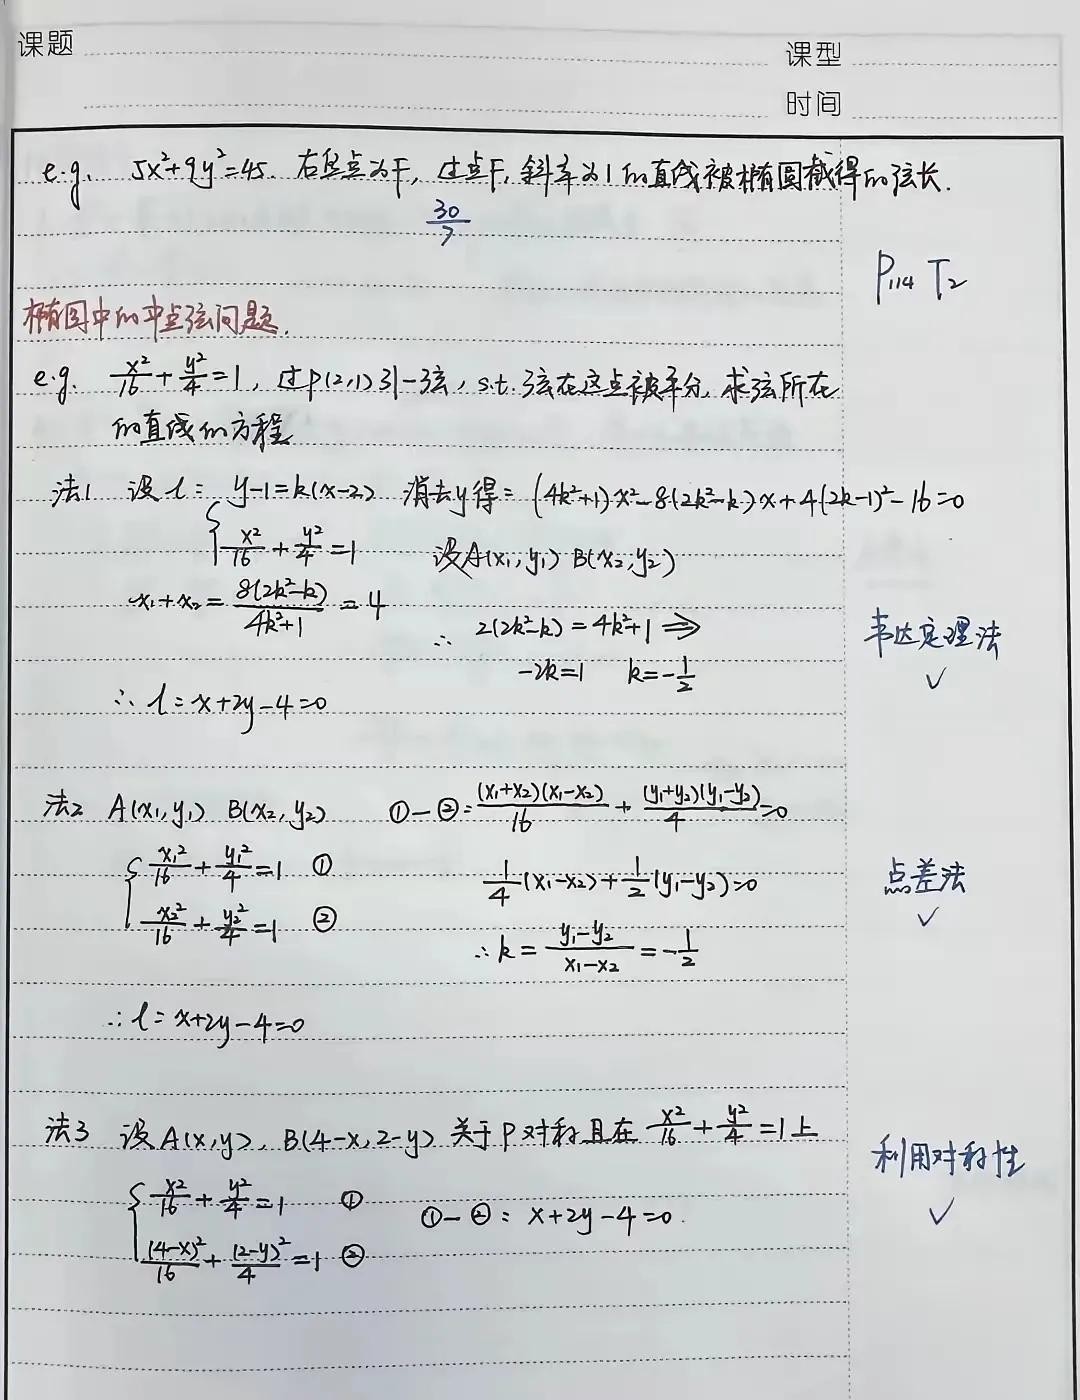 课题
课型
时间
e.g. 5x²+9y²=45. 右焦点为F, 过点F, 斜率为1的直线被椭圆截得的弦长.
30/7
P₁₁₄ T₂
椭圆中的中点弦问题.
e.g. x²/16 + y²/4 = 1, 过P(2,1)引一弦, s.t. 弦在这点被平分, 求弦所在
的直线的方程
法1 设l: y-1=k(x-2) 消去y得: (4k²+1)x²-8(2k²-k)x+4(2k-1)²-16=0
x²/16 + y²/4 = 1 设A(x₁,y₁) B(x₂,y₂)
x₁+x₂ = 8(2k²-k)/4k²+1 = 4 ∴ 2(2k²-k)=4k²+1 ⇒
韦达定理法
✓
-2k=1 k=-1/2
∴ l: x+2y-4=0
法2 A(x₁,y₁) B(x₂,y₂) ①-②: (x₁+x₂)(x₁-x₂)/16 + (y₁+y₂)(y₁-y₂)/4 =0
x₁²/16 + y₁²/4 = 1 ① 1/4(x₁-x₂)+1/2(y₁-y₂)=0
点差法
✓
x₂²/16 + y₂²/4 = 1 ② ∴ k = y₁-y₂/x₁-x₂ = -1/2
∴ l: x+2y-4=0
法3 设A(x,y), B(4-x,2-y) 关于P对称且在 x²/16 + y²/4 = 1上
利用对称性
✓
x²/16 + y²/4 = 1 ① ①-②: x+2y-4=0.
(4-x)²/16 + (2-y)²/4 = 1 ②